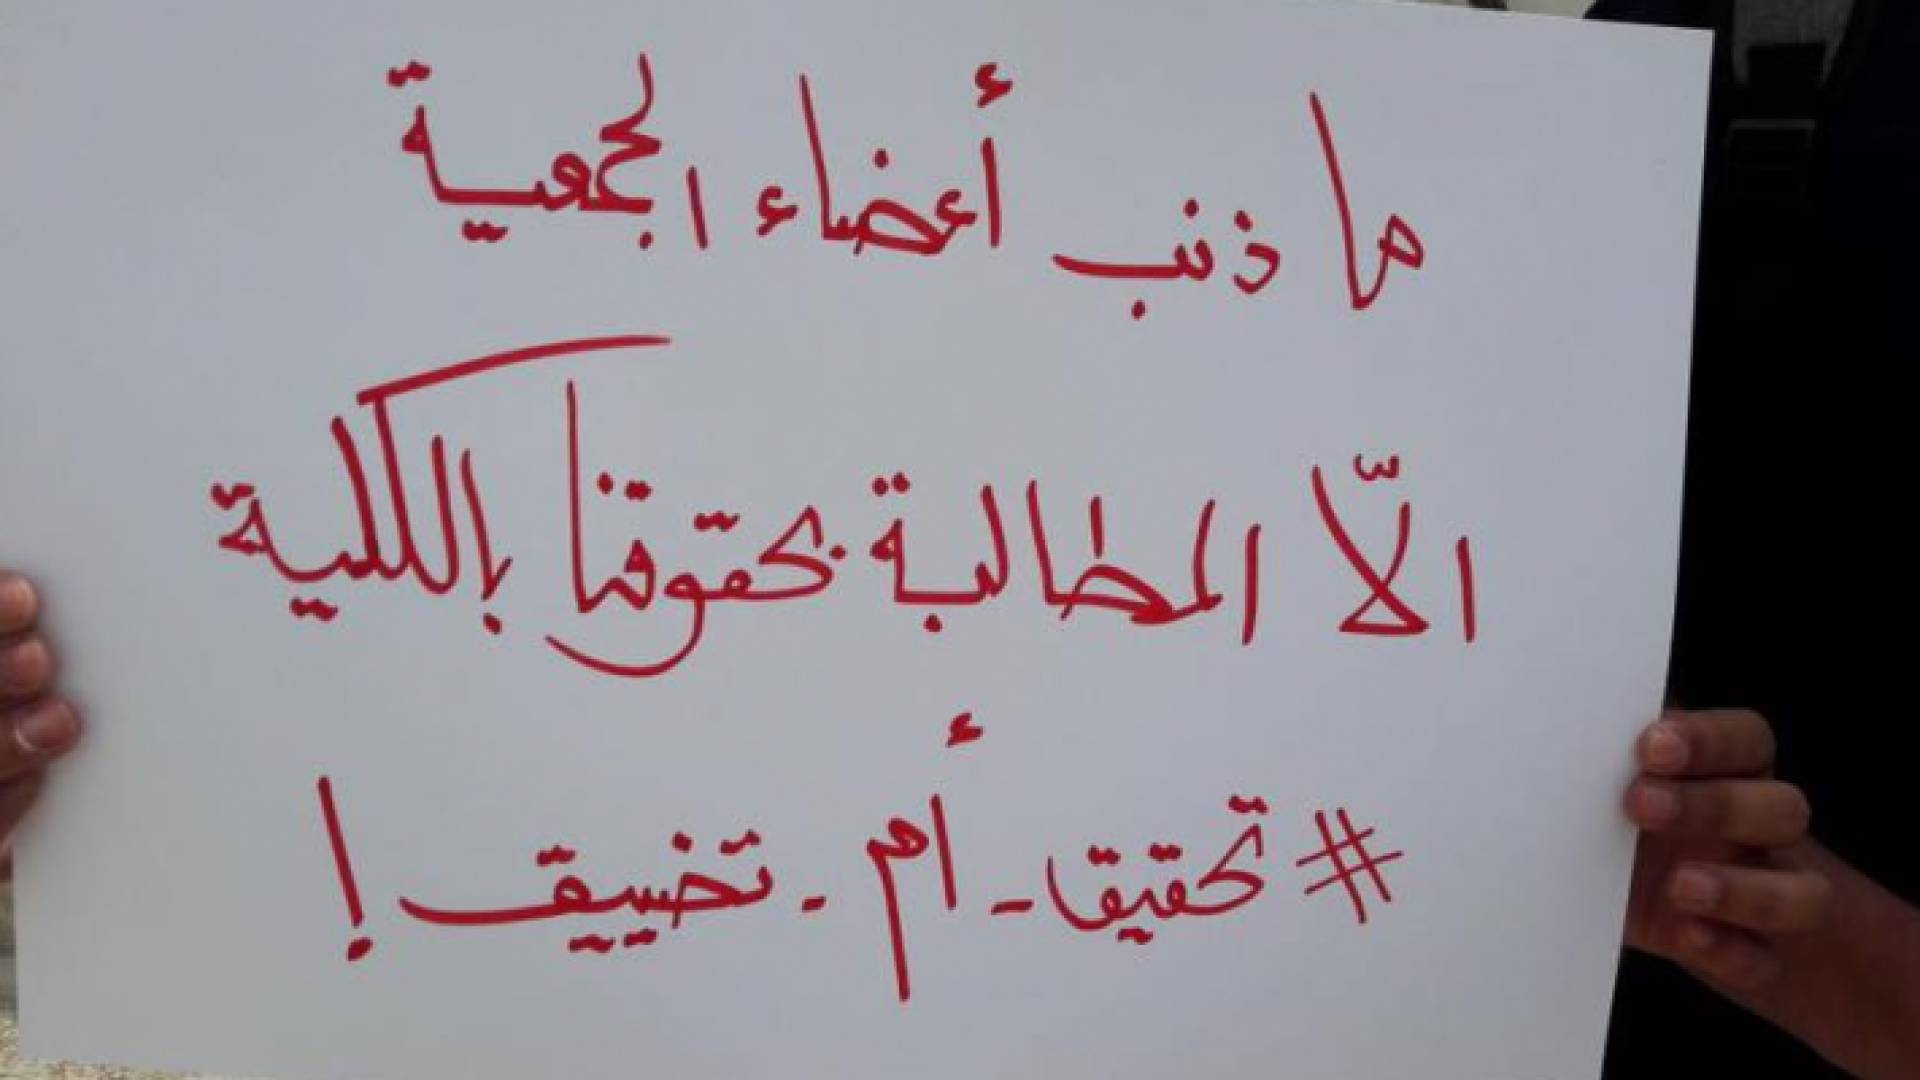 ما ذنب أعضاء الجمعية
الّا المطالبة بحقوقنا بالكلية
#تحقيق - أم - تضييق !